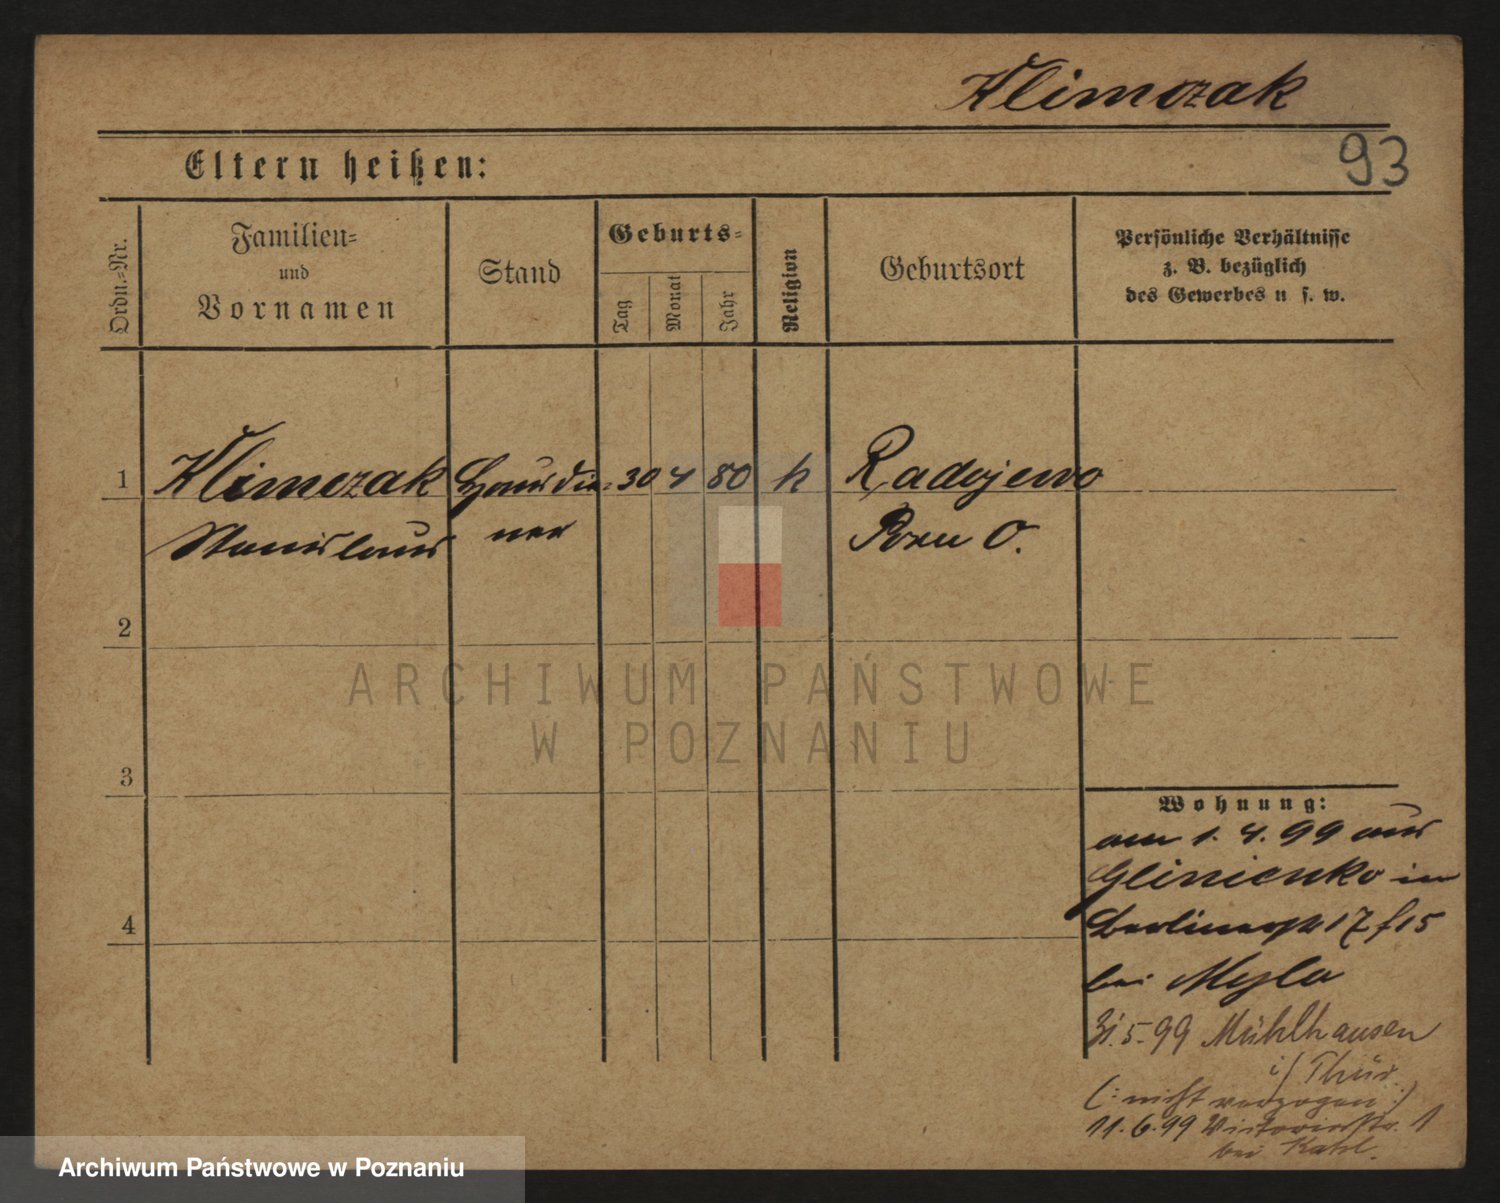 Klimczak
93
Eltern heißen:
Ordn.=Nr.
Familien=
und
Vornamen
Stand
Geburts=
Tag
Monat
Jahr
Religion
Geburtsort
Persönliche Verhältnisse
z. B. bezüglich
des Gewerbes u s. w.
1
Klimczak Hausdie= 30 4 80 k Radojewo
Stanislaus ner Posen O.
2
ARCHIWUM PAŃSTWOWE
W POZNANIU
3
Wohnung:
am 1. 4. 99 aus
Glinienko in
4
Berlinerstr 17
bei
31.5.99 Mühlhausen
i/ Thür.
(: nicht verzogen :)
11.6.99 Victoriastr. 1
bei Kahl.
Archiwum Państwowe w Poznaniu